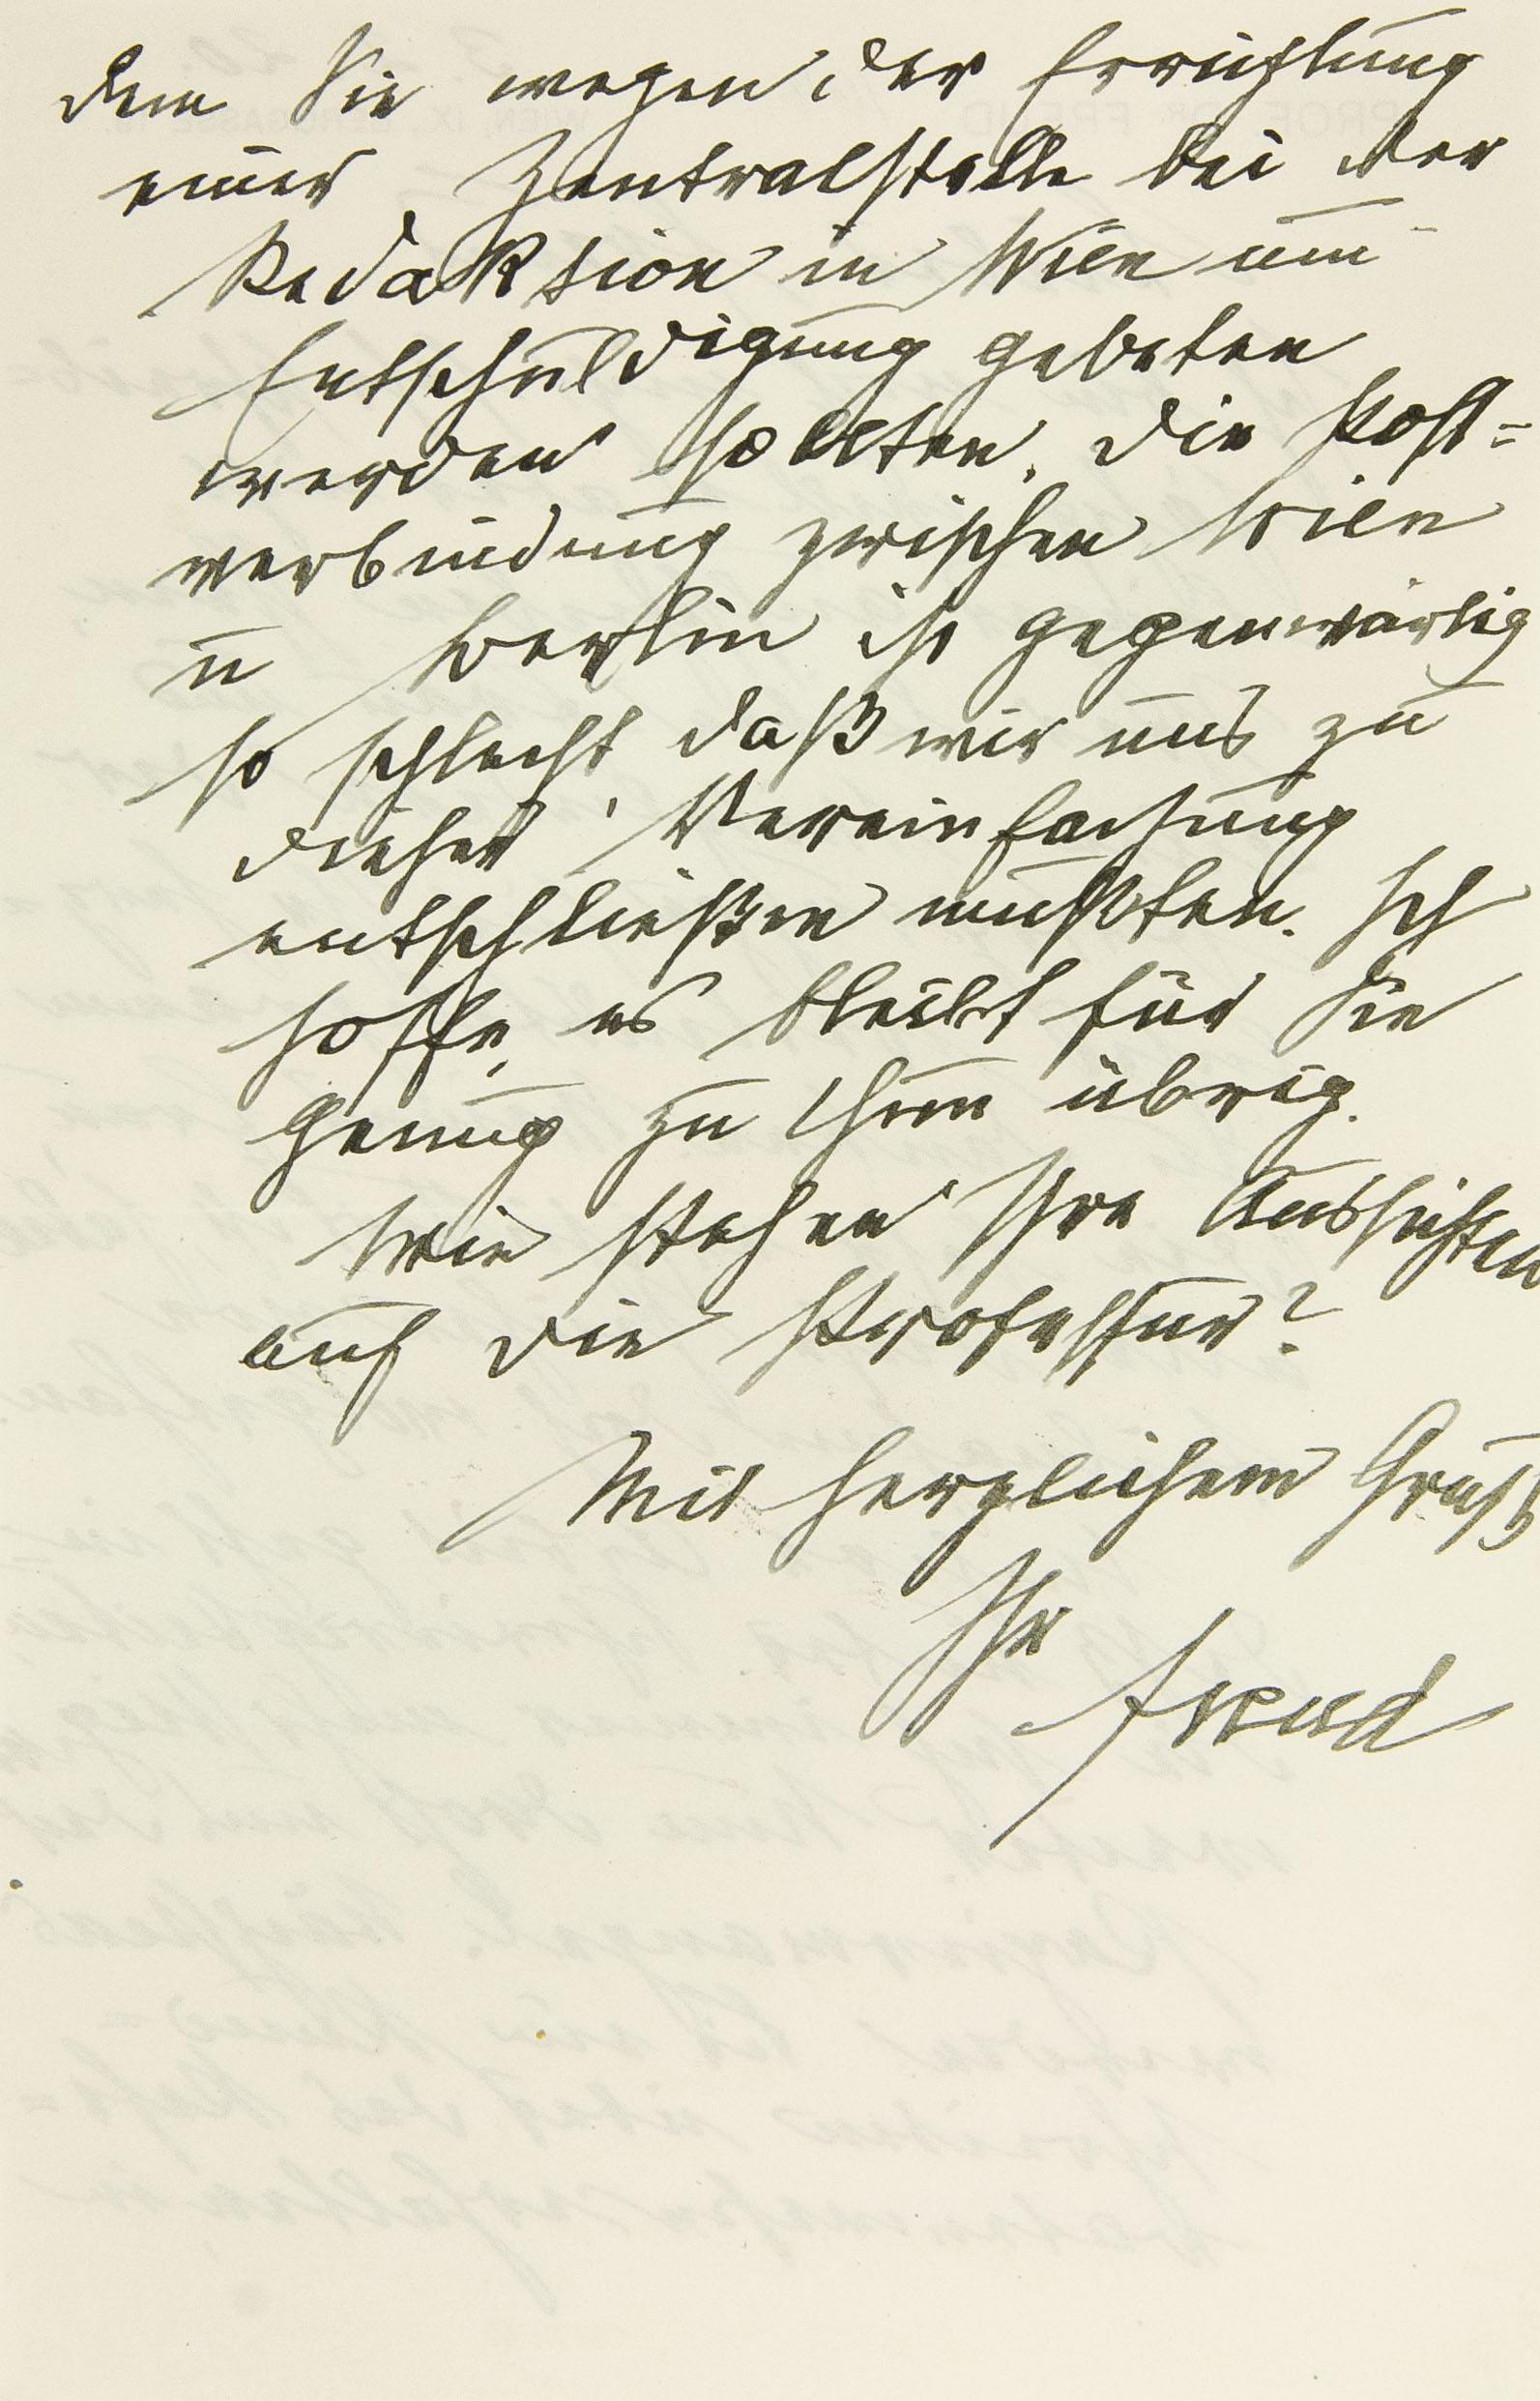 dem Sie wegen der Errichtung
einer Zentralstelle bei der
Redaktion in Wien um
Entschuldigung gebeten
werden sollten. Die Post=
verbindung zwischen Wien
u Berlin ist gegenwärtig
so schlecht daß wir uns zu
dieser Vereinfachung
entschließen mußten. Ich
hoffe, es bleibt für Sie
genug zu thun übrig.
Wie stehen Ihre Aussichten
auf die Professur?
Mit herzlichem Gruß
Ihr
Freud